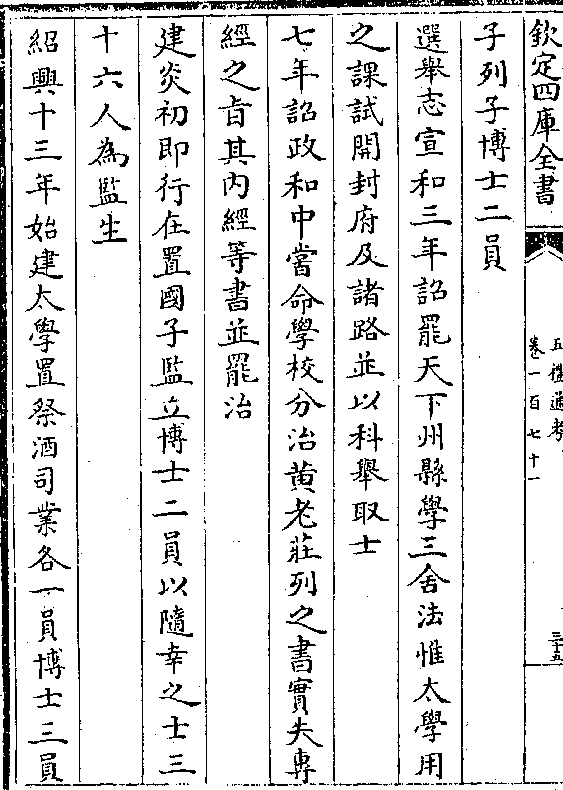 欽定四庫全書
五禮通考
卷一百七十一
三十五
子列子博士二員
選舉志宣和三年詔罷天下州縣學三舍法惟太學用
之課試開封府及諸路並以科舉取士
七年詔政和中嘗命學校分治黄老莊列之書實失專
經之旨其内經等書並罷治
建炎初即行在置國子監立博士二員以隨幸之士三
十六人為監生
紹興十三年始建太學置祭酒司業各一員博士三員